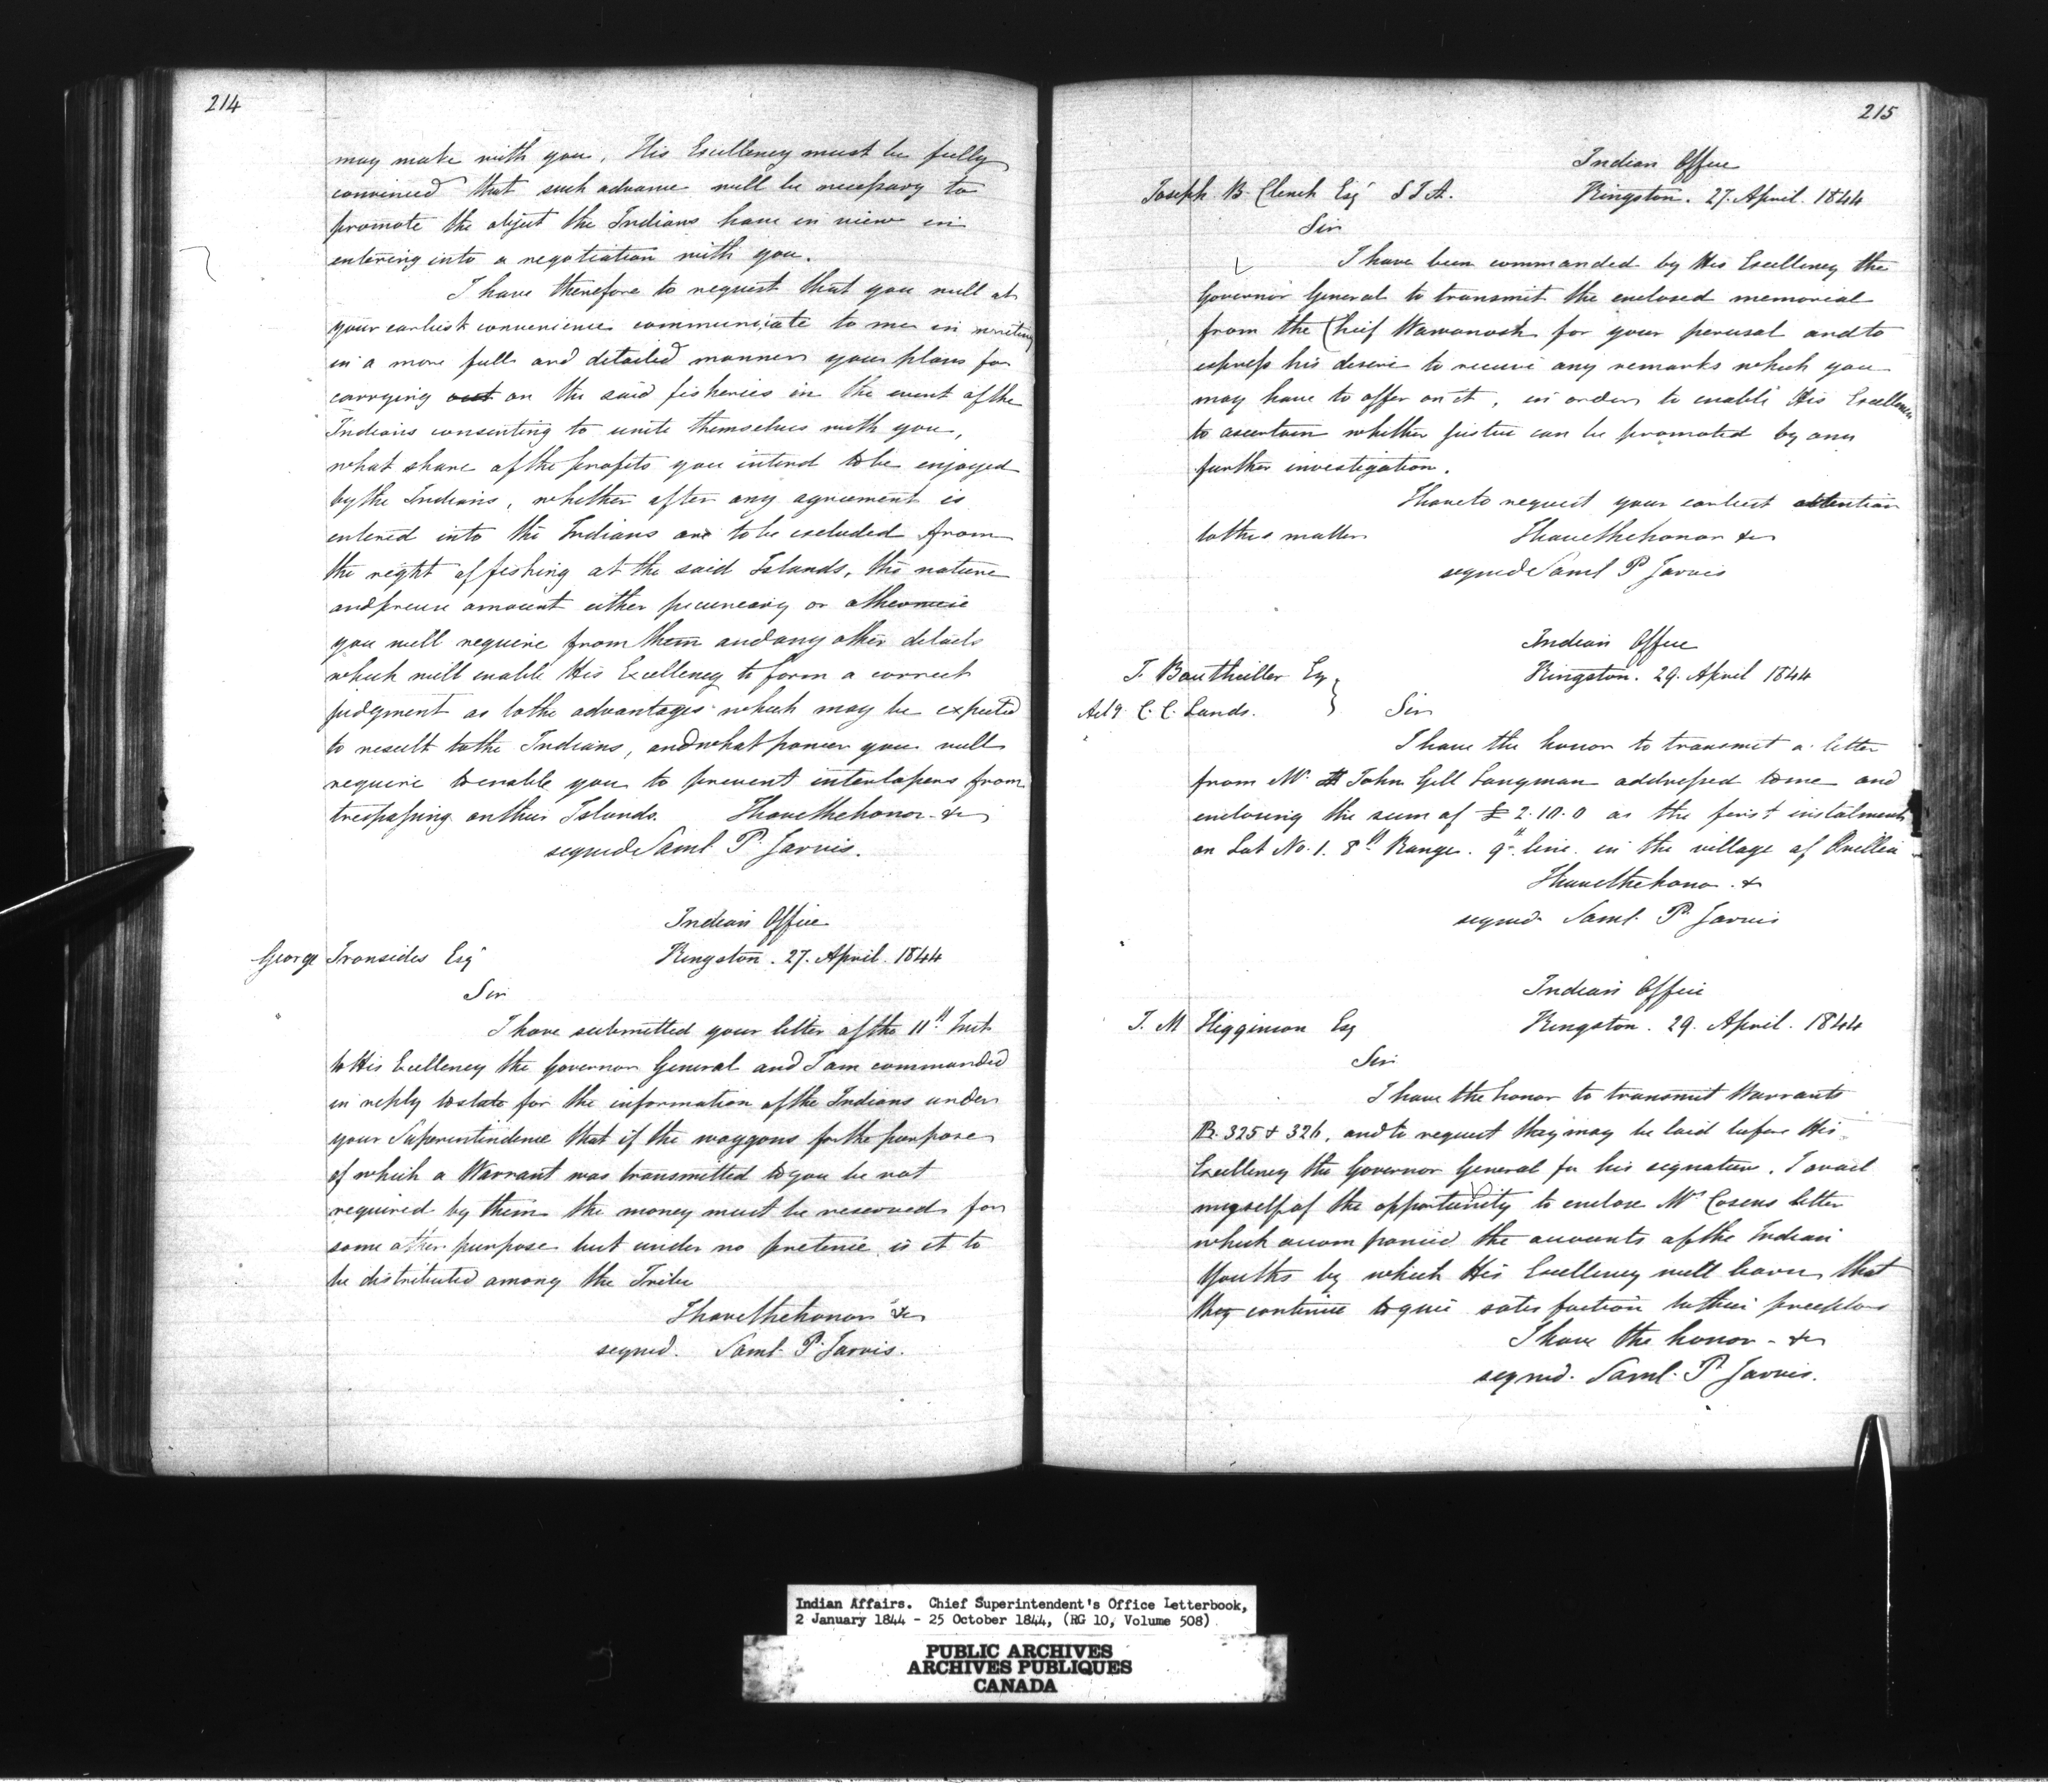 214
may make with you, His Excellency must be fully
convinced that such advance will be necessary to
promote the object the Indians have in view in
entering into a negotiation with you.
I have therefore to request that you will at
your earliest convenience communicate to me in writing
in a more full and detailed manner your plans for
carrying out on the said fisheries in the event of the
Indians consenting to unite themselves with you,
what share of the profits you intend to be enjoyed
by the Indians, whether after any agreement is
entered into the Indians are to be excluded from
the right of fishing at the said Islands, the nature
and precise amount either pecuniary or otherwise
you will require from them and any other details
which will enable His Excellency to form a correct
judgment as to the advantages which may be expected
to result to the Indians, and what power you will
require to enable you to prevent interlopers from
trespassing on their Islands. I have the honor &c
signed Saml. P. Jarvis.
Indian Office
George Ironsides Esqr Kingston. 27. April. 1844
Sir
I have submitted your letter of the 11th Inst
to His Excellency the Governor General and I am commanded
in reply to state for the information of the Indians under
your Superintendence that if the waggons for the purpose
of which a Warrant was transmitted to you be not
required by them the money must be reserved for
some other purpose but under no pretence is it to
be distributed among the Tribe
I have the honor &c
signed. Saml. P. Jarvis.
215
Indian Office
Joseph B. Clench Esqr S I A. Kingston. 27. April. 1844
Sir
I have been commanded by His Excellency the
Governor General to transmit the enclosed memorial
from the Chief Wawanosh for your perusal and to
express his desire to receive any remarks which you
may have to offer on it, in order to enable His Excellency
to ascertain whether justice can be promoted by any
further investigation.
I have to request your earliest attention
to the matter I have the honor &c
signed Saml P Jarvis
Indian Office
T. Bouthillier Esq Kingston. 29. April 1844
Actg. C. C. Lands. Sir
I have the honor to transmit a letter
from Mr. John Gill Langman addressed to me and
enclosing the sum of £ 2.10.0 as the first instalment
on Lot No. 1. 8th Range. 9th line. in the village of Orillia
I have the honor. &
signed. Saml. P. Jarvis
Indian Office
J. M Higginson Esq Kingston. 29. April. 1844
Sir
I have the honor to transmit Warrants
B. 325 & 326, and to request they may be laid before His
Excellency the Governor General for his signature. I avail
myself of the opportunity to enclose Mr Cosens letter
which accompanied the accounts of the Indian
Youths by which His Excellency will learn that
they continue to give satisfaction to their preceptors
I have the honor - &c
signed. Saml. P Jarvis.
Indian Affairs. Chief Superintendent's Office Letterbook,
2 January 1844 - 25 October 1844, (RG 10, Volume 508)
PUBLIC ARCHIVES
ARCHIVES PUBLIQUES
CANADA